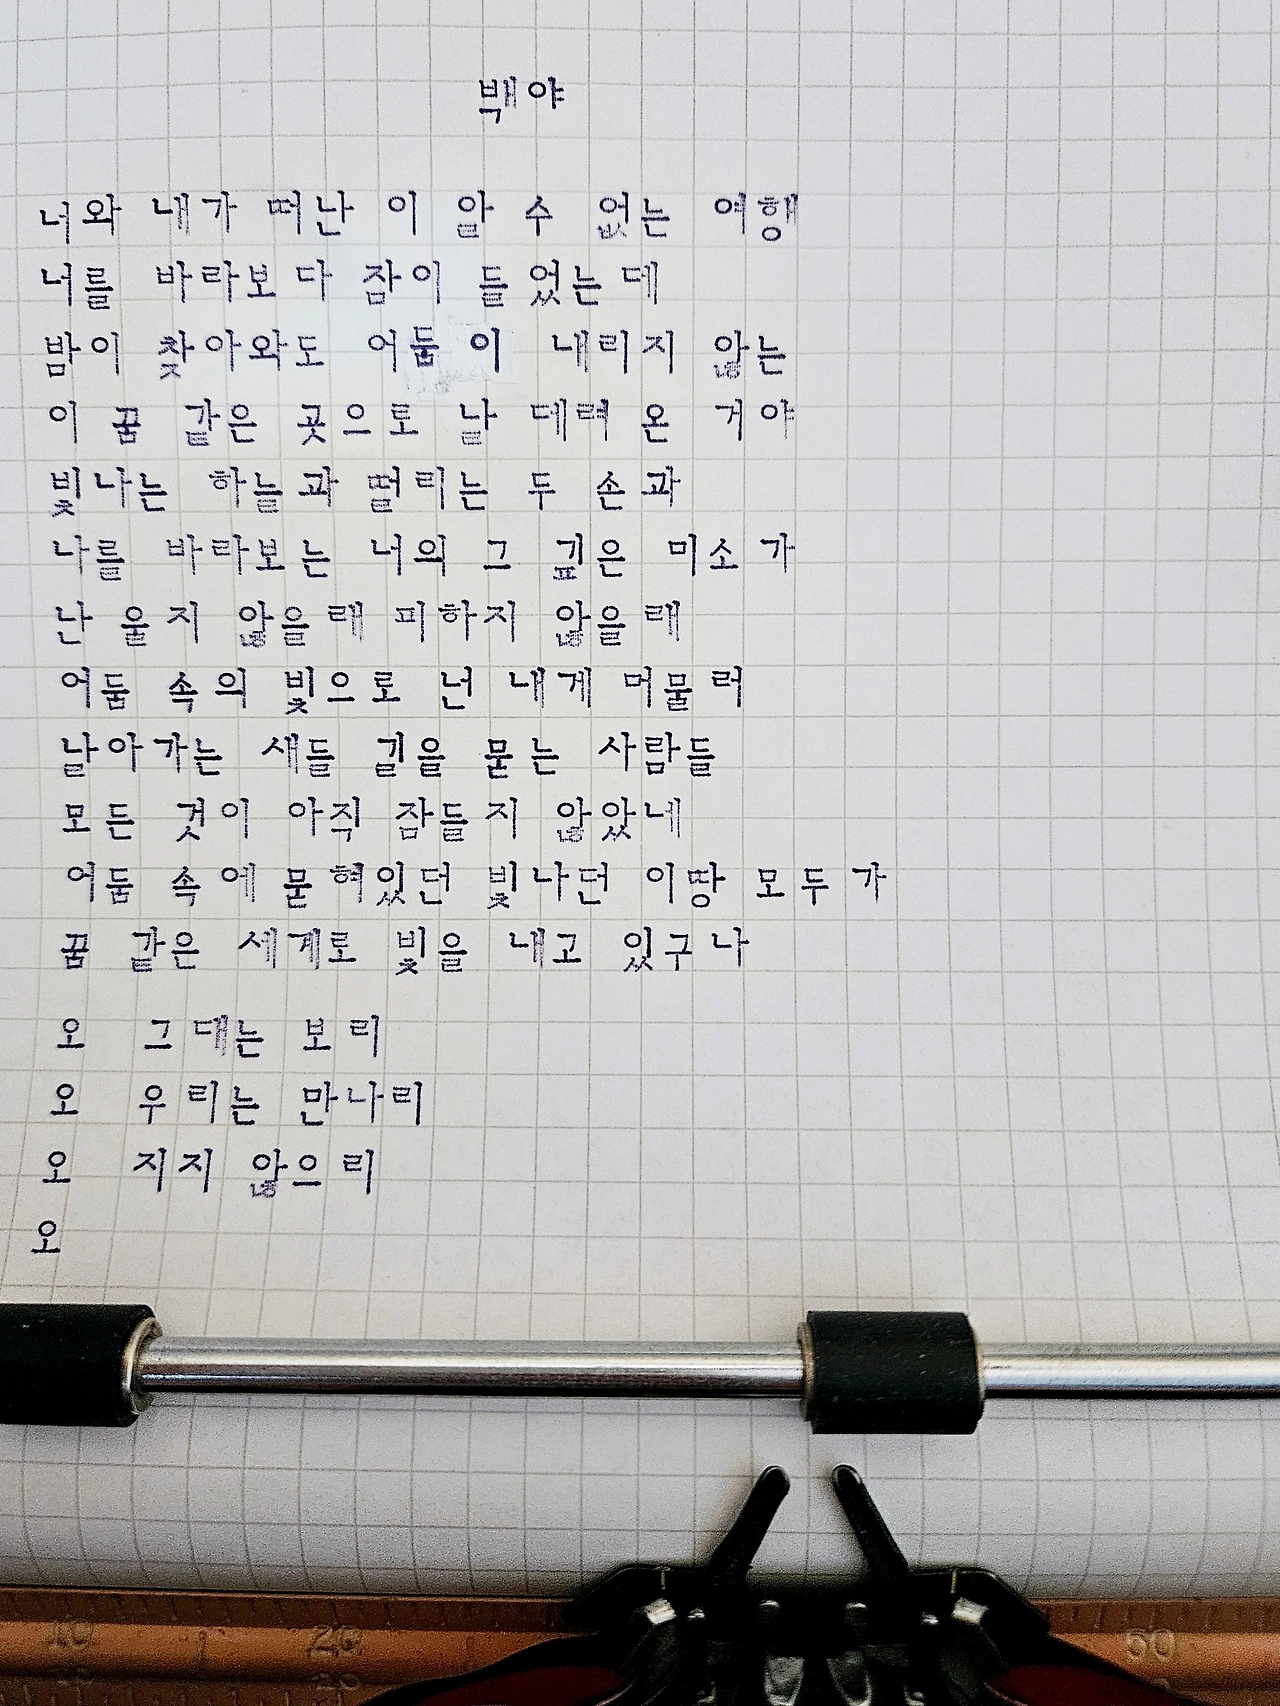 백야
너와 내가 떠난 이 알 수 없는 여행
너를 바라보다 잠이 들었는데
밤이 찾아와도 어둠이 내리지 않는
이 꿈 같은 곳으로 날 데려 온 거야
빛나는 하늘과 떨리는 두 손과
나를 바라보는 너의 그 깊은 미소가
난 울지 않을래 피하지 않을래
어둠 속의 빛으로 넌 내게 머물러
날아가는 새들 길을 묻는 사람들
모든 것이 아직 잠들지 않았네
어둠 속에 묻혀있던 빛나던 이땅 모두가
꿈 같은 세계로 빛을 내고 있구나
오 그대는 보리
오 우리는 만나리
오 지지 않으리
오
10 20 50